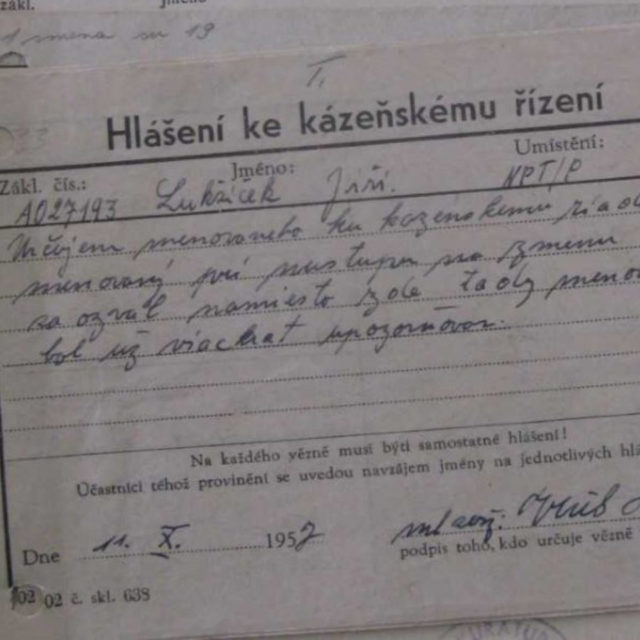 zákl. jméno
19
I.
Hlášení ke kázeňskému řízení
Zákl. čís.: Jméno: Umístění:
A027193 Lukšíček Jiří. NPT/P
Určujem menovaneho ku kazenskemu
menovaný pri nástupu na zmenu
sa ozval namiesto zde
bol už viackrat upozornovan.
Na každého vězně musí býti samostatné hlášení!
Účastníci téhož provinění se uvedou navzájem jmény na jednotlivých
Dne 11. X. 1957
podpis toho, kdo určuje vězně
02 02 č. skl. 638